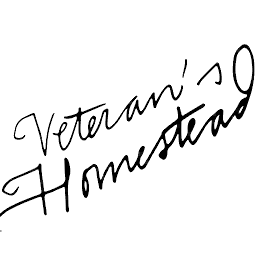 Veteran's
Homestead